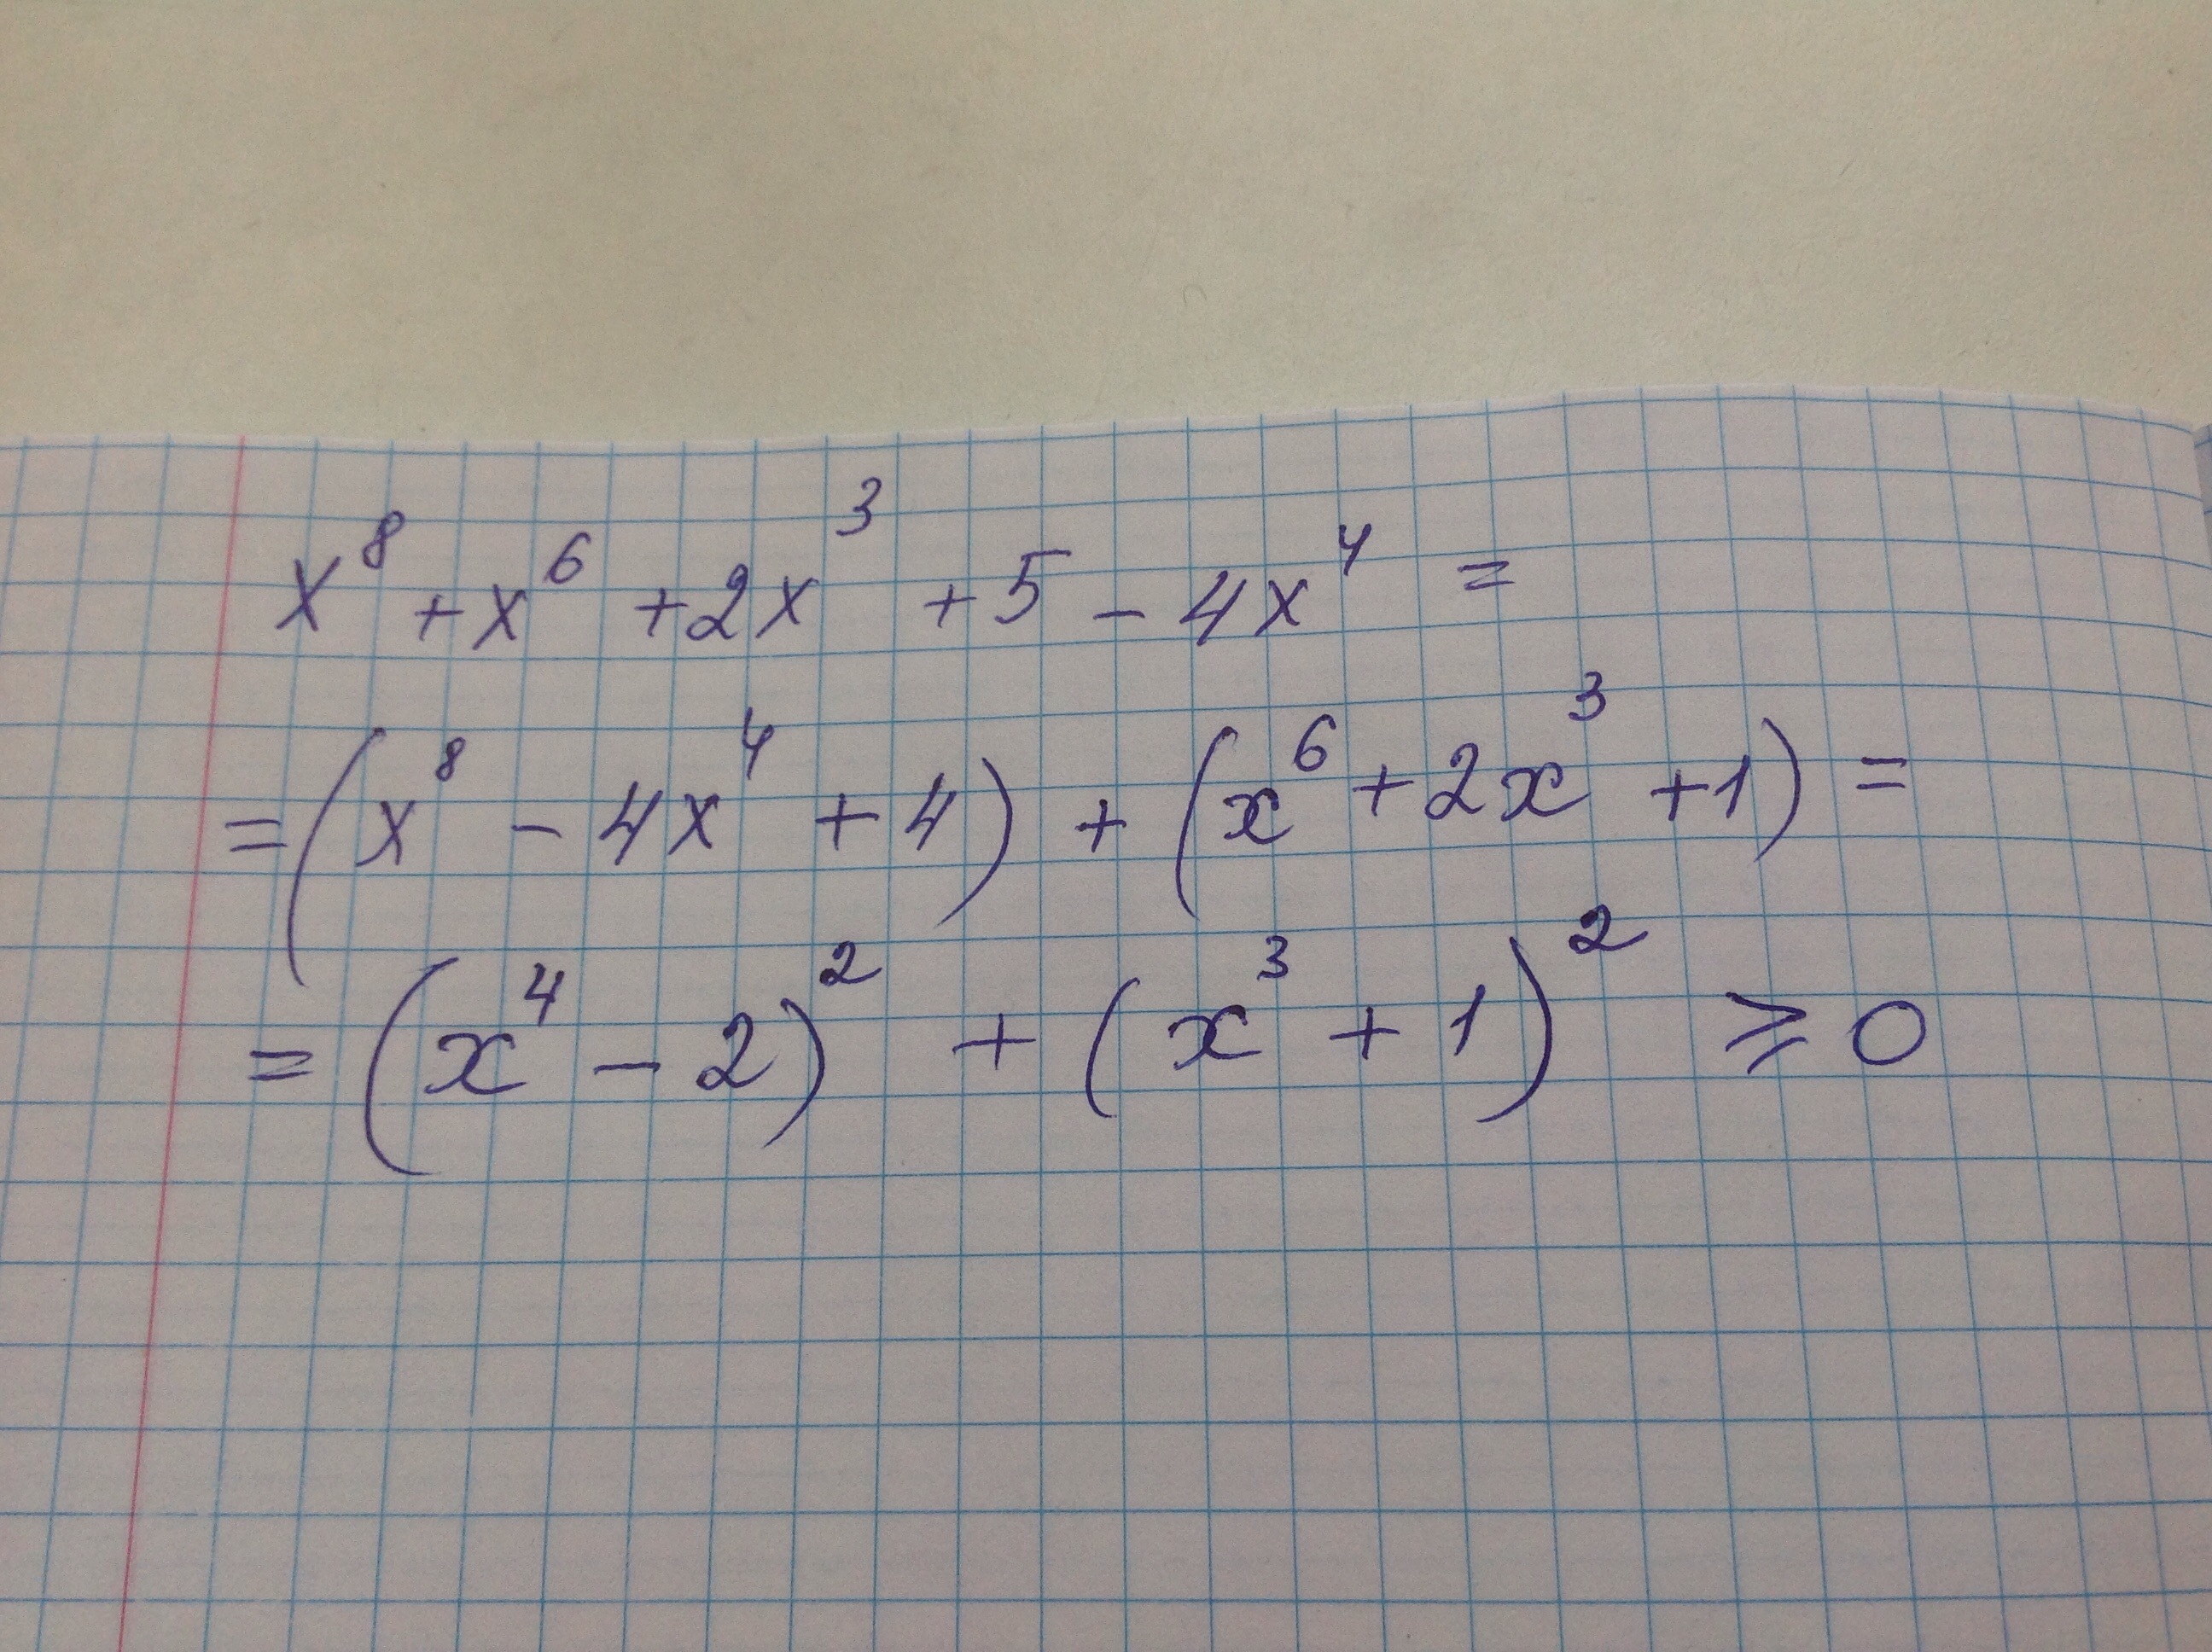 x⁸ + x⁶ + 2x³ + 5 - 4x⁴ =
= (x⁸ - 4x⁴ + 4) + (x⁶ + 2x³ + 1) =
= (x⁴ - 2)² + (x³ + 1)² ⩾ 0